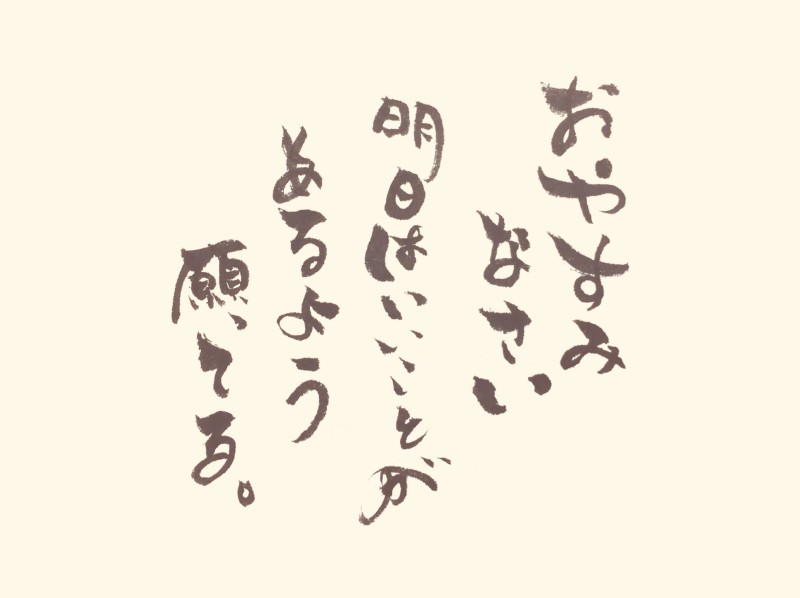 おやすみ
なさい
明日はいいことが
あるよう
願いてる。